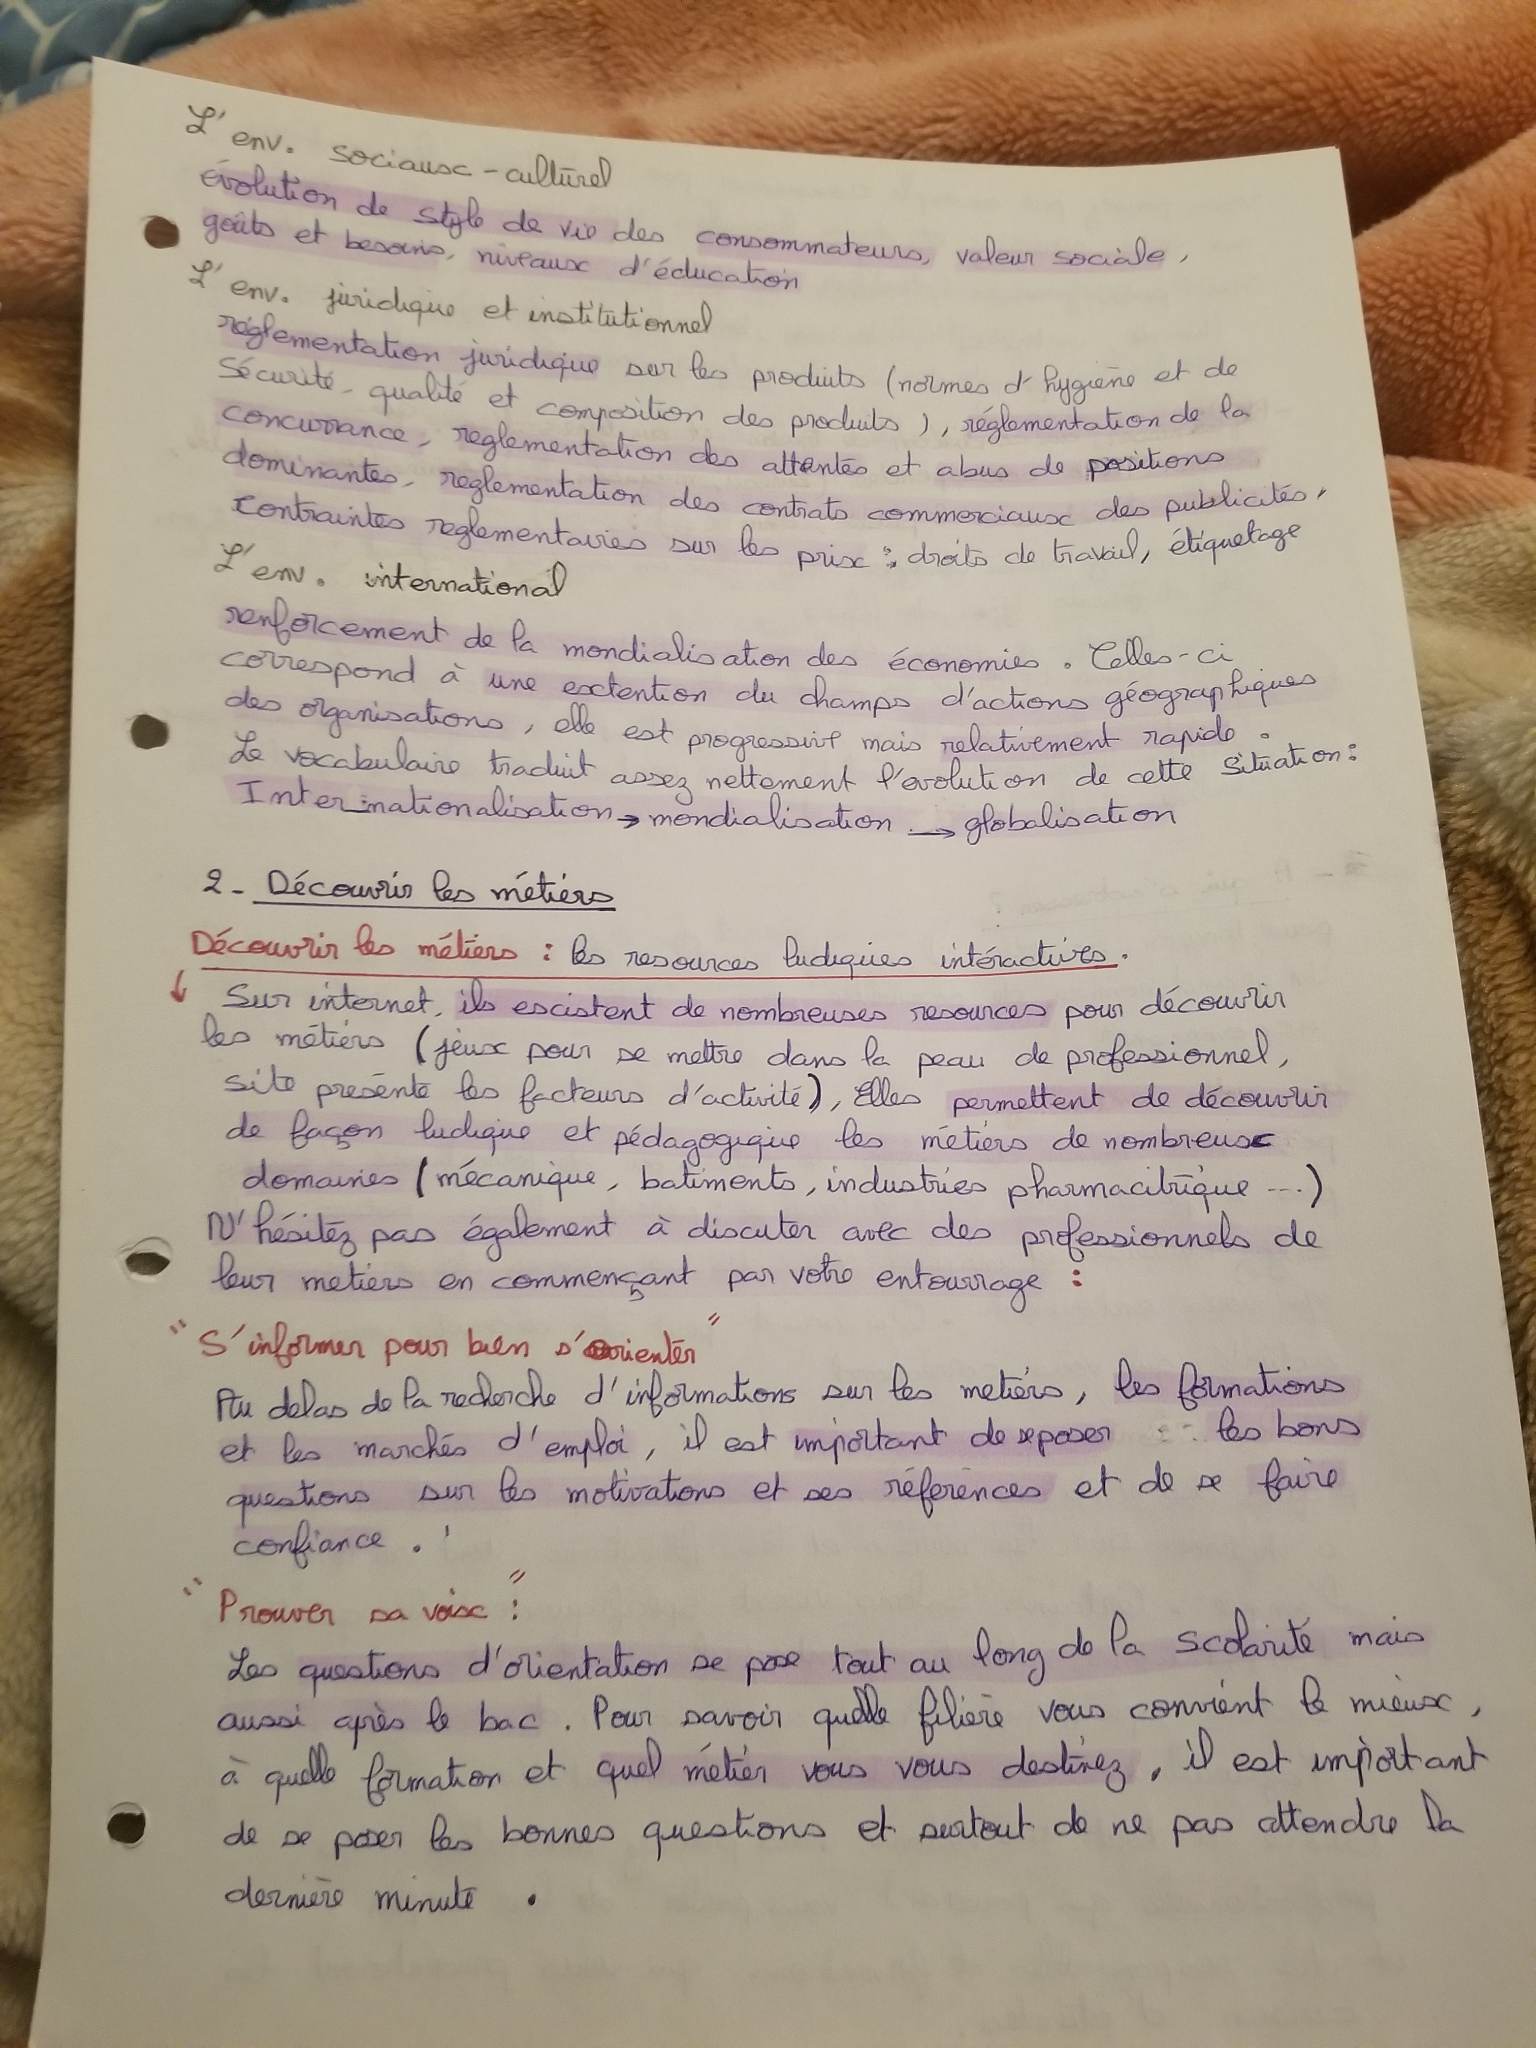 L'env. sociaux-culturel
évolution de style de vie des consommateurs, valeur sociale,
goûts et besoins, niveaux d'éducation
L'env. juridique et institutionnel
réglementation juridique sur les produits (normes d'hygiène et de
Sécurité, qualité et composition des produits), réglementation de la
concurrance, reglementation des attentes et abus de positions
dominantes, reglementation des contrats commerciaux des publicités,
Contraintes reglementaires sur les prix : droits de travail, étiquetage
L'env. international
renforcement de la mondialisation des économies. Celles-ci
correspond à une extention du champs d'actions géographiques
des organisations, elle est progressive mais relativement rapide.
Le vocabulaire traduit assez nettement l'évolution de cette situation :
Inter-nationalisation → mondialisation → globalisation
2 - Découvrir les métiers
Découvrir les métiers : les resources ludiques intéractives.
↓ Sur internet, ils existent de nombreuses resources pour découvrir
les métiers (jeux pour se mettre dans la peau de professionnel,
site présente les facteurs d'activité), Elles permettent de découvrir
de façon ludique et pédagogique les métiers de nombreux
domaines (mécanique, batiments, industries pharmacitrique ...)
N'hésitez pas également à discuter avec des professionnels de
leur metiers en commençant par votre entourrage :
"S'informer pour bien s'orienter"
Au delas de la recherche d'informations sur les metiers, les formations
et les marchés d'emploi, il est important de se poser les bons
questions sur les motivations et ses références et de se faire
confiance.
"Prouver sa voix" :
Les questions d'orientation se pose tout au long de la scolarité mais
aussi après le bac. Pour savoir quelle filière vous convient le mieux,
à quelle formation et quel métier vous vous destinez, il est important
de se poser les bonnes questions et surtout de ne pas attendre la
dernière minute.